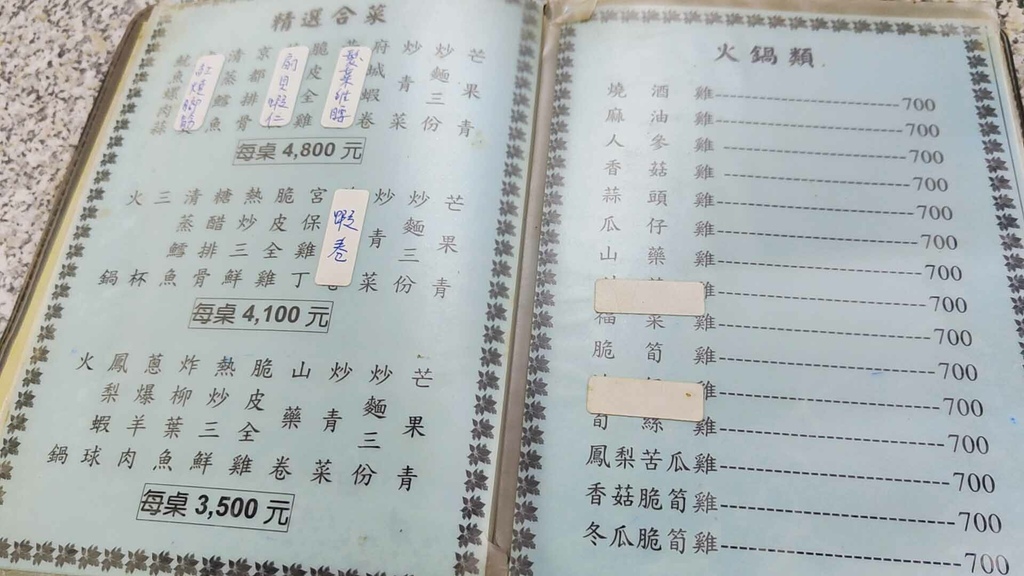 精選合菜
魷魚螺肉蒜
紅燒腳筋
清蒸鱈魚
京都排骨
扇貝蝦仁
脆皮全雞
府城蝦卷
炒青菜
炒麵三份
芒果青
每桌 4,800 元
火鍋
三杯
清蒸鱈魚
糖醋排骨
熱炒三鮮
脆皮全雞
宮保雞丁
蝦卷
炒青菜
炒麵三份
芒果青
每桌 4,100 元
火鍋
鳳梨蝦球
蔥爆羊肉
炸柳葉魚
熱炒三鮮
脆皮全雞
山藥卷
炒青菜
炒麵三份
芒果青
每桌 3,500 元
火鍋類
燒酒雞----------700
麻油雞----------700
人參雞----------700
香菇雞----------700
蒜頭雞----------700
瓜仔雞----------700
山藥雞----------700
雞----------700
福菜雞----------700
脆筍雞----------700
雞----------700
筍絲雞----------700
鳳梨苦瓜雞----------700
香菇脆筍雞----------700
冬瓜脆筍雞----------700